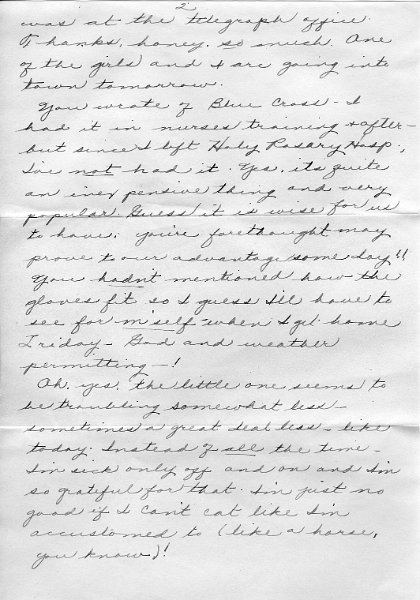 2
was at the telegraph office.
Thanks, honey, so much. One
of the girls and I are going into
town tomorrow.
You wrote of Blue Cross - I
had it in nurses training & after -
but since I left Holy Rosary Hosp,
I've not had it. Yes, its quite
an inexpensive thing and very
popular. Guess it is wise for us
to have; you're forethought may
prove to our advantage some day!!
You hadn't mentioned how the
gloves fit so I guess I'll have to
see for m'self when I get home
Friday - God and weather
permitting - !
Oh, yes, the little one seems to
be troubling somewhat less -
sometimes a great deal less - like
today. Instead of all the time -
I'm sick only off and on and I'm
so grateful for that. I'm just no
good if I can't eat like I'm
accustomed to (like a horse,
you know)!